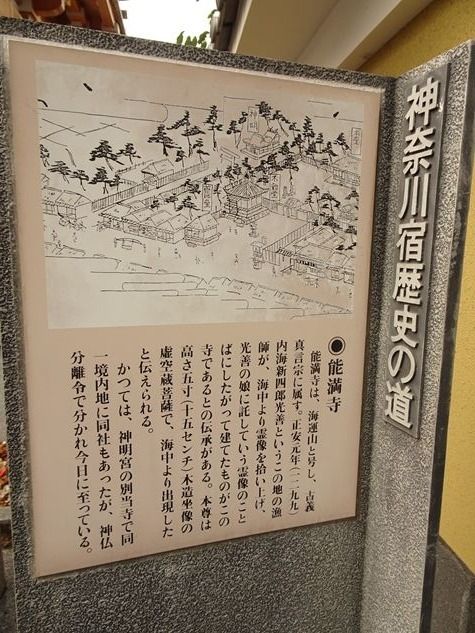 神奈川宿歴史の道
◉能満寺
能満寺は、海運山と号し、古義
真言宗に属す。正安元年(一二九九)
内海新四郎光善というこの地の漁
師が、海中より霊像を拾い上げ、
光善の娘に託していう霊像のこと
ばにしたがって建てたものがこの
寺であるとの伝承がある。本尊は
高さ五寸(十五センチ)木造坐像の
虚空蔵菩薩で、海中より出現した
と伝えられる。
かつては、神明宮の別当寺で同
一境内地に同社もあったが、神仏
分離令で分かれ今日に至っている。
神明